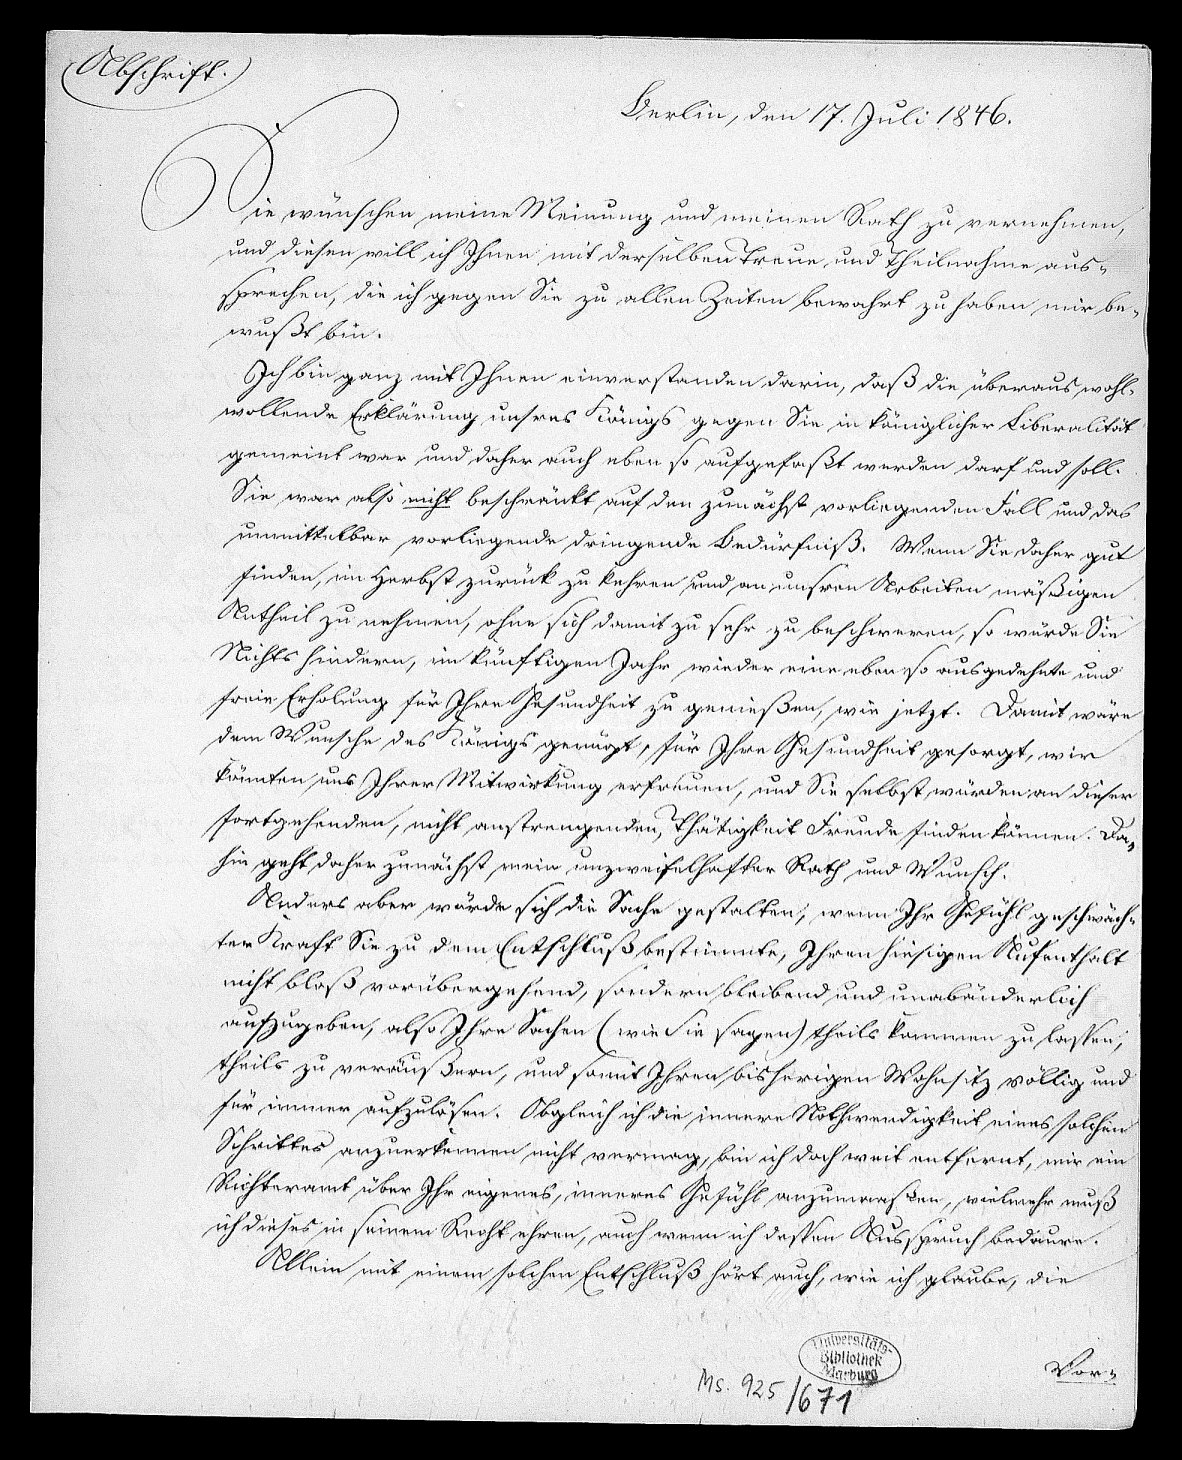 Abschrift.
Berlin, den 17. Juli 1846.
Sie wünschen meine Meinung und meinen Rath zu vernehmen,
und diesen will ich Ihnen mit derselben Treue und Theilnahme aus-
sprechen, die ich gegen Sie zu allen Zeiten bewahrt zu haben mir be-
wußt bin.
Ich bin ganz mit Ihnen einverstanden darin, daß die überaus wohl-
wollende Erklärung unsres Königs gegen Sie in königlicher Liberalität
gemeint war und daher auch eben so aufgefaßt werden darf und soll.
Sie war also nicht beschränkt auf den zunächst vorliegenden Fall und das
unmittelbar vorliegende dringende Bedürfniß. Wenn Sie daher gut
finden, im Herbst zurück zu kehren und an unsren Arbeiten mäßigen
Antheil zu nehmen, ohne sich damit zu sehr zu beschweren, so würde Sie
Nichts hindern, im künftigen Jahr wieder eine eben so ausgedehnte und
freie Erholung für Ihre Gesundheit zu genießen, wie jetzt. Damit wäre
dem Wunsche des Königs genügt, für Ihre Gesundheit gesorgt, wir
könnten uns Ihrer Mitwirkung erfreuen, und Sie selbst würden an dieser
fortgehenden, nicht anstrengenden, Thätigkeit Freude finden können. Da-
hin geht daher zunächst mein unzweifelhafter Rath und Wunsch.
Anders aber würde sich die Sache gestalten, wenn Ihr Gefühl geschwäch-
ter Kraft Sie zu dem Entschluß bestimmte, Ihren hiesigen Aufenthalt
nicht bloß vorübergehend, sondern bleibend und unabänderlich
aufzugeben, also Ihre Sachen (wie Sie sagen) theils kommen zu lassen,
theils zu veräußern, und somit Ihren bisherigen Wohnsitz völlig und
für immer aufzulösen. Obgleich ich die innere Nothwendigkeit eines solchen
Schrittes anzuerkennen nicht vermag, bin ich doch weit entfernt, mir ein
Richteramt über Ihr eigenes, inneres Gefühl anzumaßen, vielmehr muß
ich dieses in seinem Recht ehren, auch wenn ich dessen Ausspruch bedaure.
Allein mit einem solchen Entschluß hört auch, wie ich glaube, die
Vor-
Universitäts-
Bibliothek
Marburg
Ms. 925/671